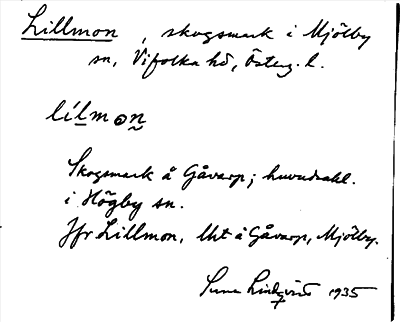 Lillmon, skogsmark i Mjölby
sn, Vifolka hd, Österg. l.
lílmon
Skogsmark å Gåvarp; huvudsakl.
i Högby sn.
Jfr Lillmon, lht å Gåvarp, Mjölby.
Sune Lindqvist 1935